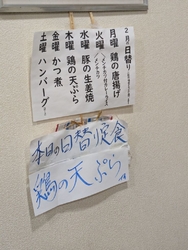 2月の日替り
月曜 鶏の唐揚げ
火曜
水曜 豚の生姜焼
木曜 鶏の天ぷら
金曜 かつ煮
土曜 ハンバーグ
本日の日替定食
鶏の天ぷら